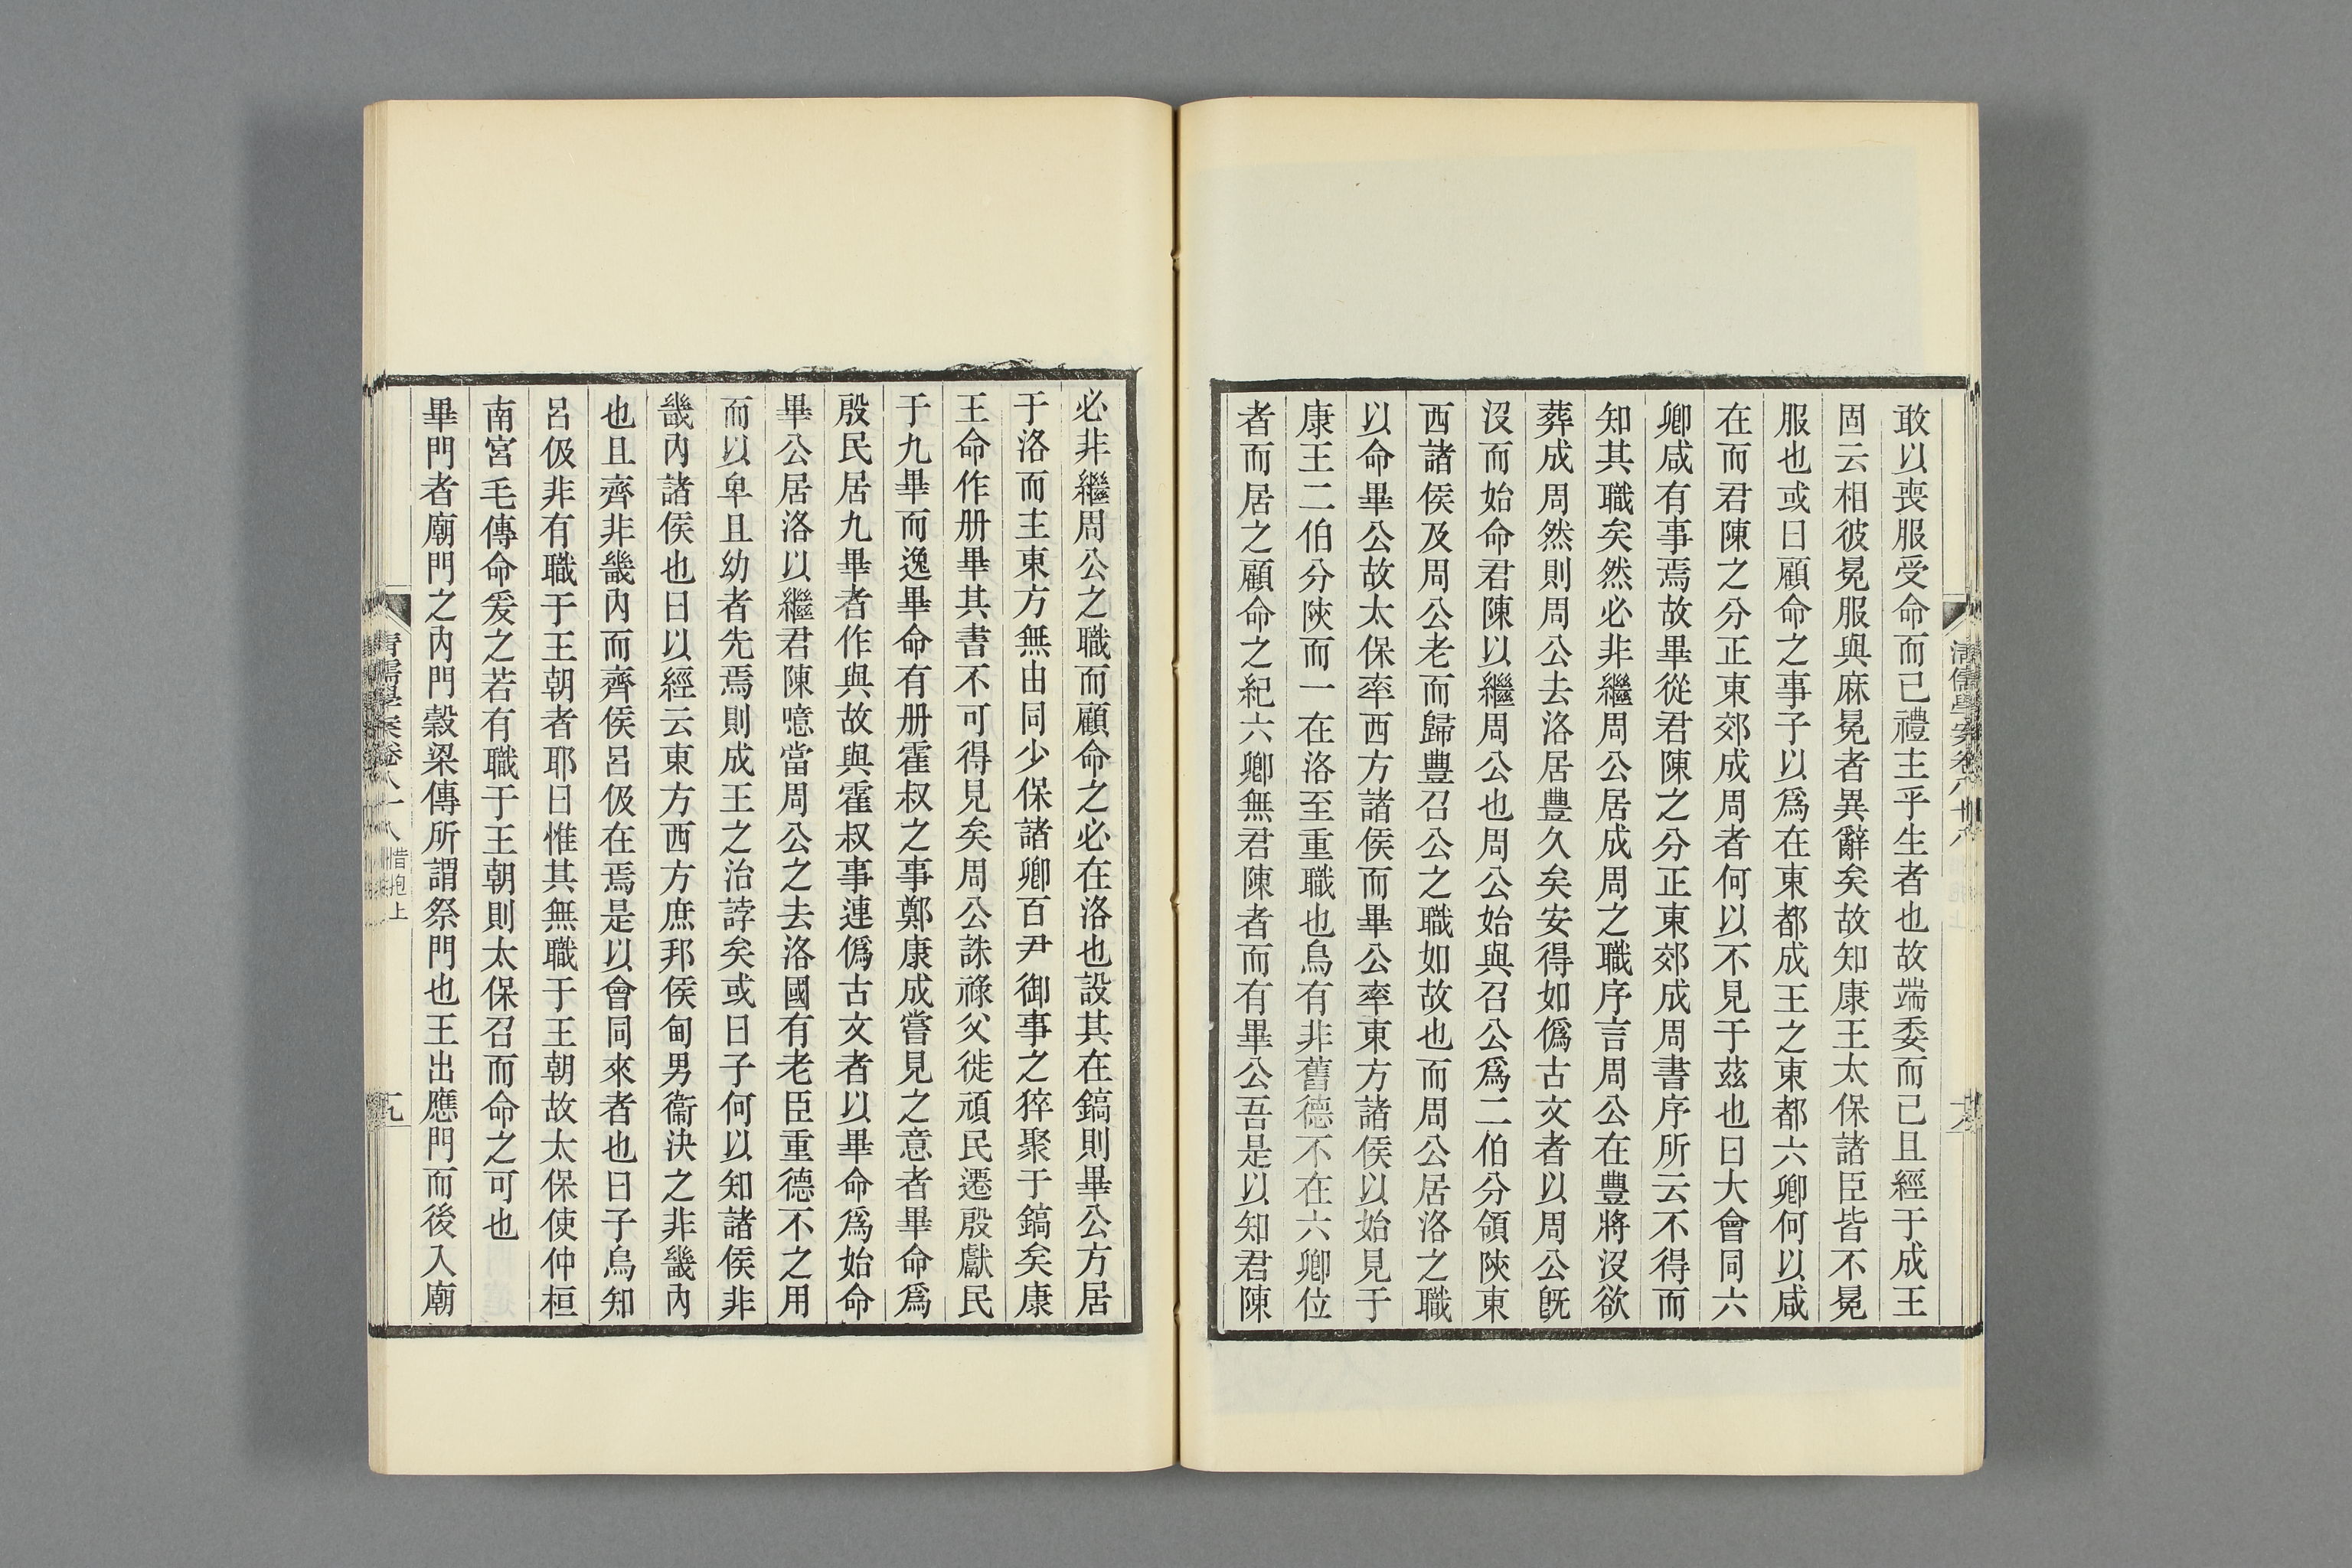 敢以喪服受命而已禮主乎生者也故端委而已且經于成王
固云相彼冕服與麻冕者異辭矣故知康王太保諸臣皆不冕
服也或曰顧命之事子以爲在東都成王之東都六卿何以咸
在而君陳之分正東郊成周者何以不見于茲也曰大會同六
卿咸有事焉故畢從君陳之分正東郊成周書序所云不得而
知其職矣然必非繼周公居成周之職序言周公在豐將沒欲
葬成周然則周公去洛居豐久矣安得如僞古文者以周公旣
沒而始命君陳以繼周公也周公始與召公爲二伯分領陝東
西諸侯及周公老而歸豐召公之職如故也而周公居洛之職
以命畢公故太保率西方諸侯而畢公率東方諸侯以始見于
康王二伯分陝而一在洛至重職也烏有非舊德不在六卿位
者而居之顧命之紀六卿無君陳者而有畢公吾是以知君陳
必非繼周公之職而顧命之必在洛也設其在鎬則畢公方居
于洛而主東方無由同少保諸卿百尹御事之猝聚于鎬矣康
王命作册畢其書不可得見矣周公誅祿父徙頑民遷殷獻民
于九畢而逸畢命有册霍叔之事鄭康成嘗見之意者畢命爲
殷民居九畢者作與故與霍叔事連僞古文者以畢命爲始命
畢公居洛以繼君陳噫當周公之去洛國有老臣重德不之用
而以卑且幼者先焉則成王之治誖矣或曰子何以知諸侯非
畿內諸侯也曰以經云東方西方庶邦侯甸男衞決之非畿內
也且齊非畿內而齊侯呂伋在焉是以會同來者也曰子烏知
呂伋非有職于王朝者耶曰惟其無職于王朝故太保使仲桓
南宮毛傳命爰之若有職于王朝則太保召而命之可也
畢門者廟門之內門穀梁傳所謂祭門也王出應門而後入廟
清儒學案卷八十八
惜抱上